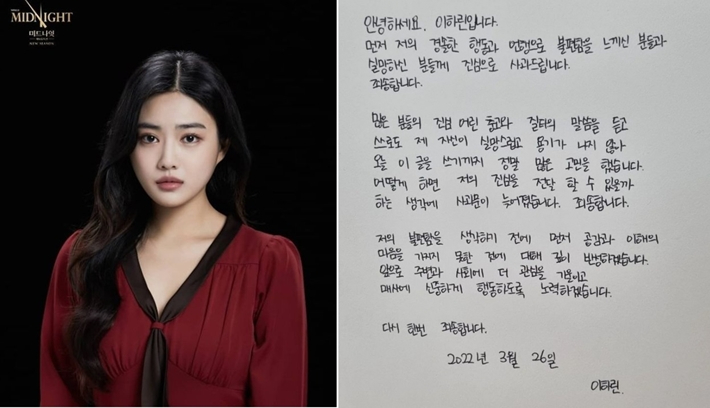 MIDNIGHT
미드나잇
안녕하세요. 이하린입니다.
먼저 저의 경솔한 행동과 언행으로 불편함을 느끼신 분들과
실망하신 분들께 진심으로 사과드립니다.
죄송합니다.
많은 분들의 진심 어린 충고와 질타의 말씀을 듣고
스스로도 제 자신이 실망스럽고 용기가 나지 않아
오늘 이 글을 쓰기까지 정말 많은 고민을 했습니다.
어떻게 하면 저의 진심을 전달 할 수 있을까
하는 생각에 사과문이 늦어졌습니다. 죄송합니다.
저의 불편함을 생각하기 전에 먼저 공감과 이해의
마음을 가지지 못한 점에 대해 깊이 반성하겠습니다.
앞으로 주변과 사회에 더 관심을 기울이고
매사에 신중하게 행동하도록 노력하겠습니다.
다시 한번 죄송합니다.
2022년 3월 26일
이하린